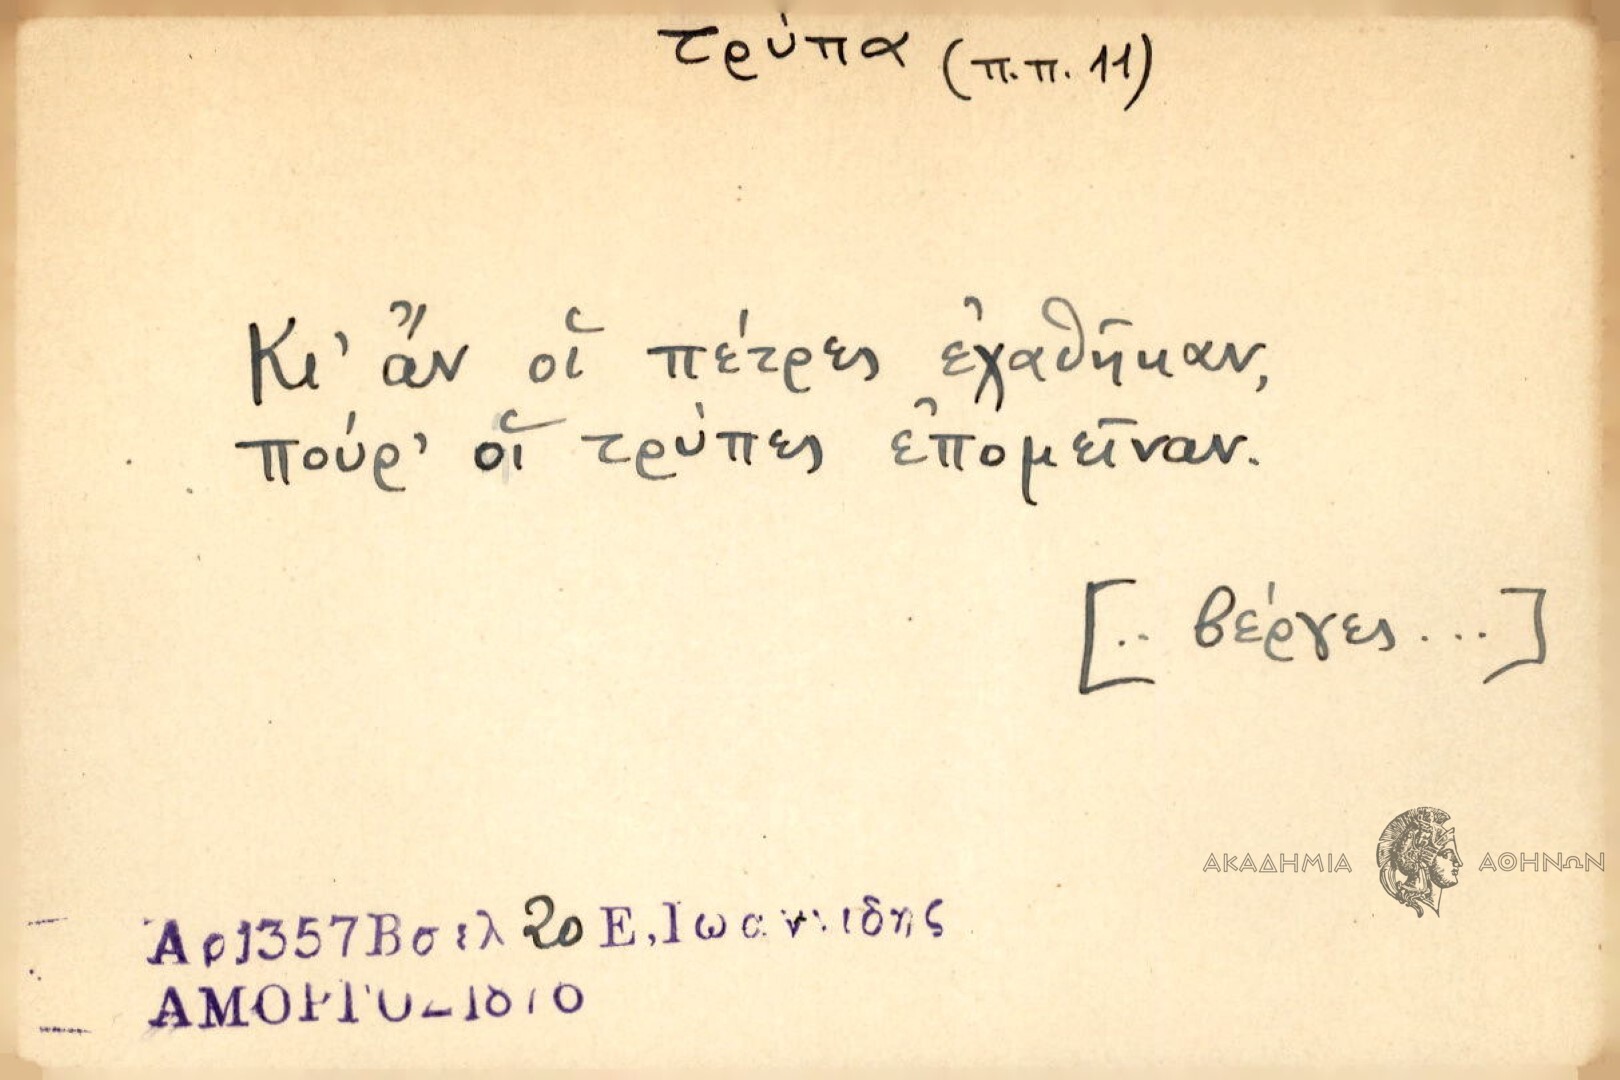 τρύπα (π.π. 11)
Κι' ἂν οἱ πέτρες ἐχαθῆκαν,
πούρ' οἱ τρύπες ἐπομεῖναν.
[.. βέργες ...]
ΑΚΑΔΗΜΙΑ ΑΘΗΝΩΝ
Αρ1357Βσελ 20 Ε.Ιωαννιδης
ΑΜΟΡΓΟΣ